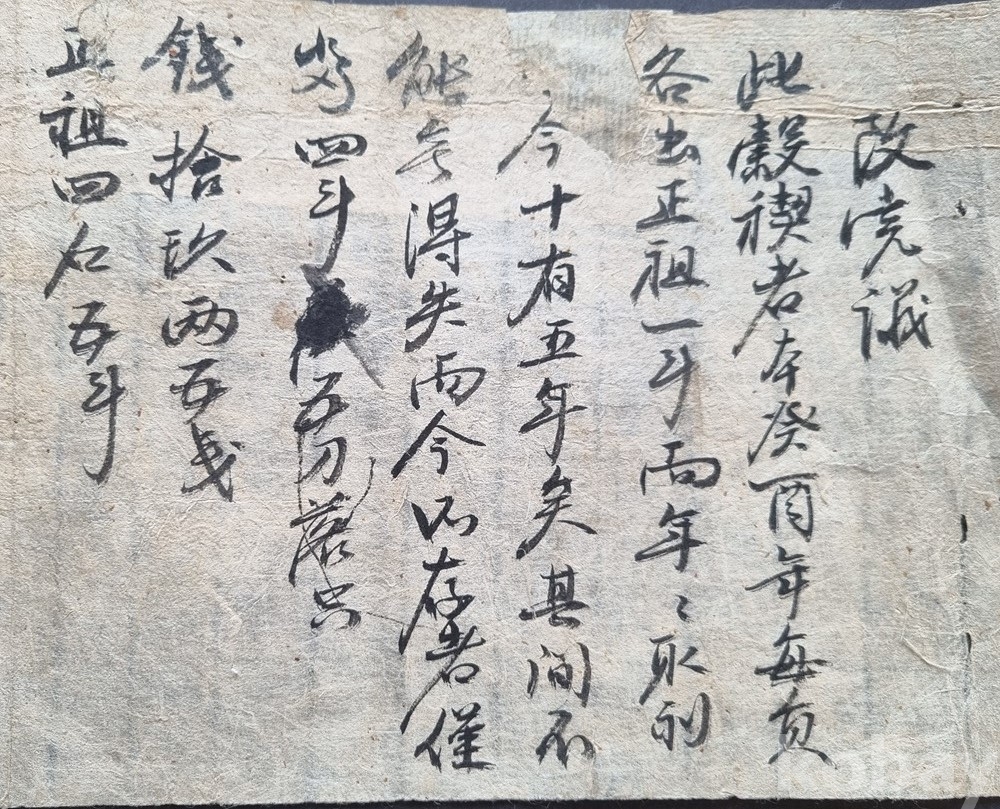 改完議
此穀禊者本癸酉年每員
各出正租一斗而年〻取利
今十有五年矣其間不
能無得失而今所存者僅
四斗五刀落只
錢拾玖兩五戔
正租四石五斗
kobay